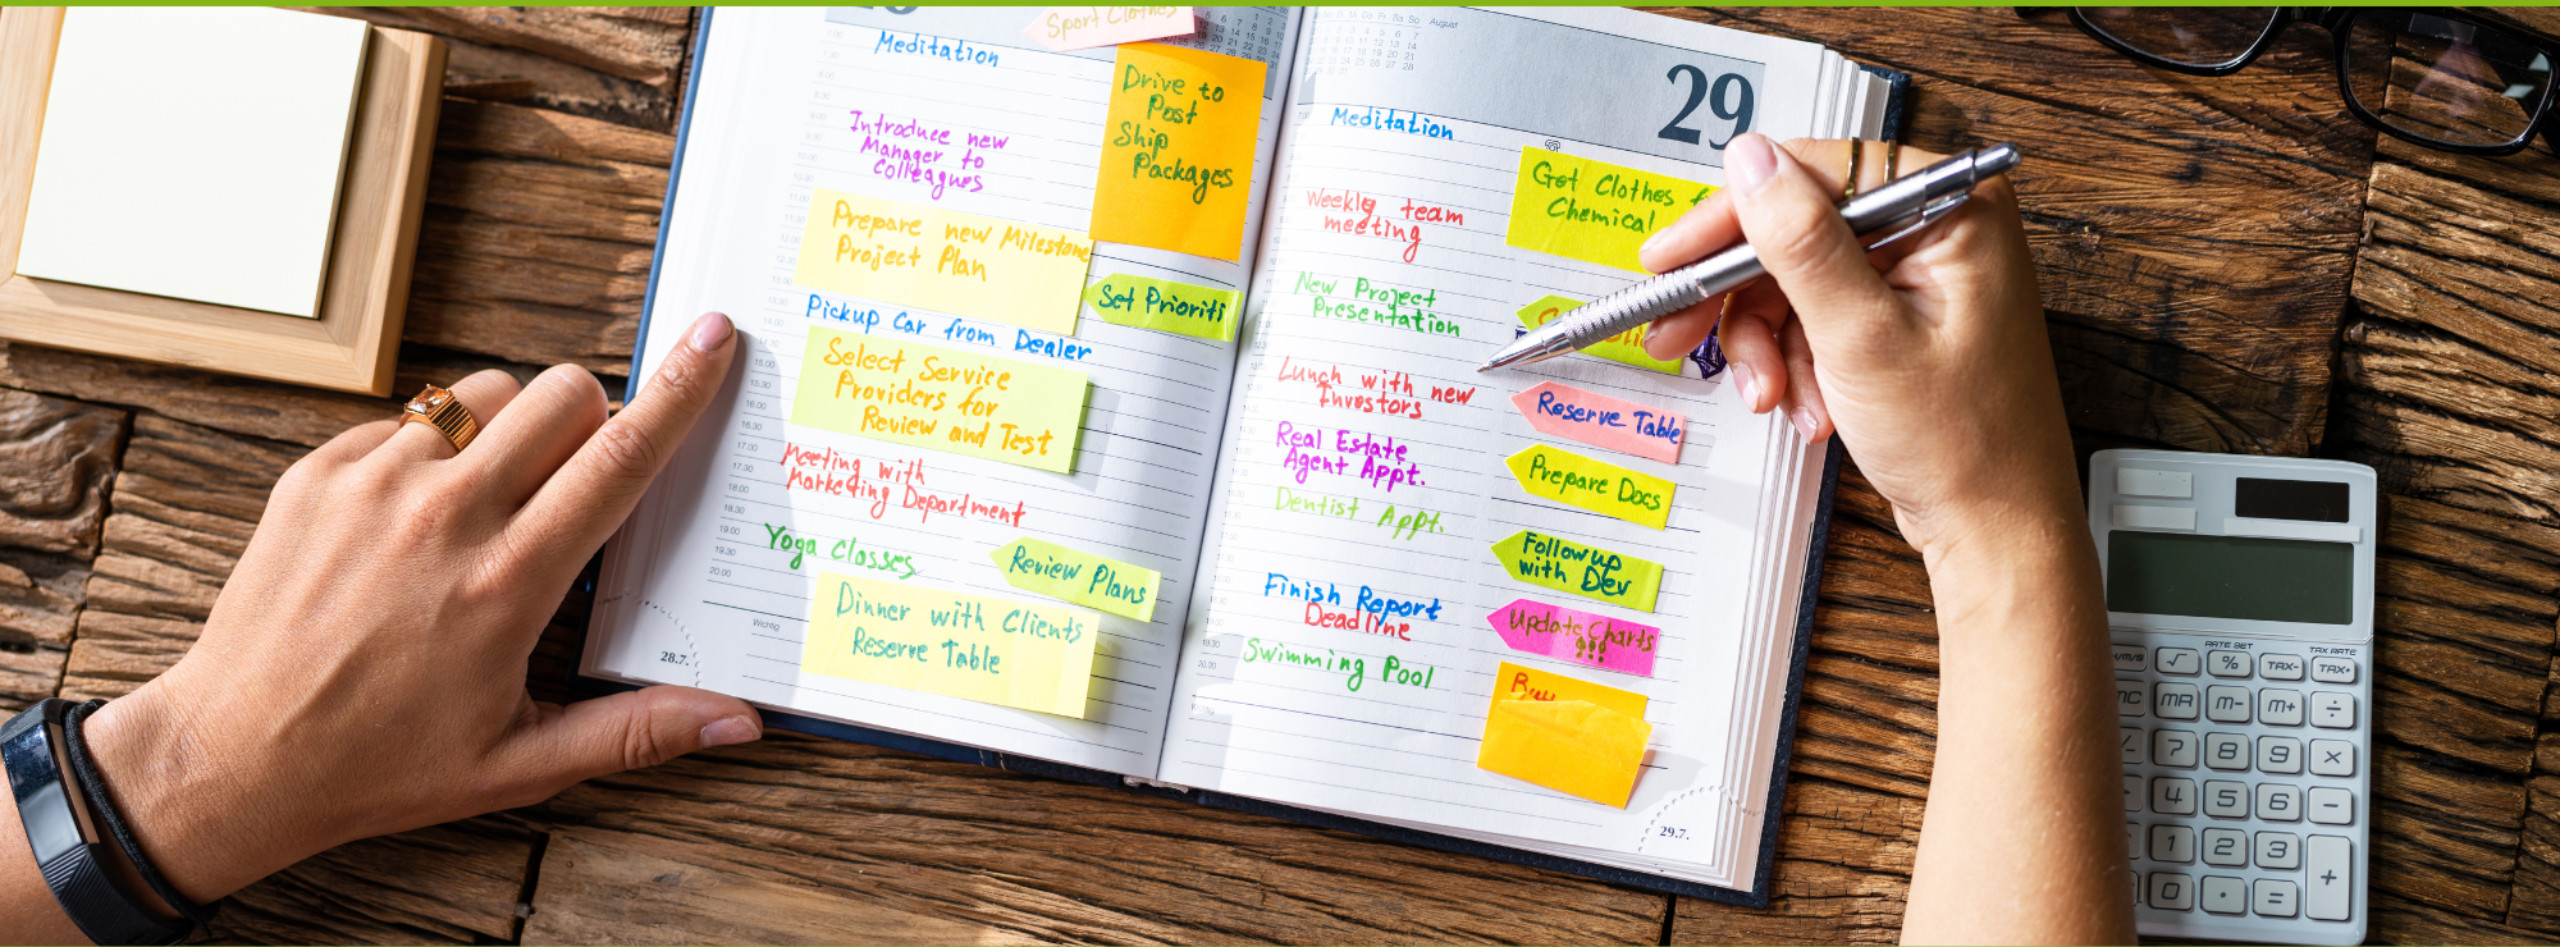 Sport Clothes
Meditation
Drive to
Post
Ship
Packages
Introduce new
Manager to
Colleagues
Prepare new Milestone
Project Plan
Set Prioriti
Pickup Car from Dealer
Select Service
Providers for
Review and Test
Meeting with
Marketing Department
Yoga Classes
Review Plans
Dinner with Clients
Reserve Table
17.00
17.30
18.00
18.30
19.00
19.30
20.00
Wichtig
28.7.
August
29
Meditation
Get Clothes f
Chemical
Weekly team
meeting
New Project
Presentation
Lunch with new
Investors
Reserve Table
Real Estate
Agent Appt.
Prepare Docs
Dentist Appt.
Follow up
with Dev
Finish Report
Deadline
Update Charts
!!!
Swimming Pool
Buy
19.30
20.00
Wichtig
29.7.
RATE SET
TAX RATE
√
%
TAX-
TAX+
MR
M-
M+
÷
7
8
9
×
4
5
6
−
1
2
3
+
0
.
=